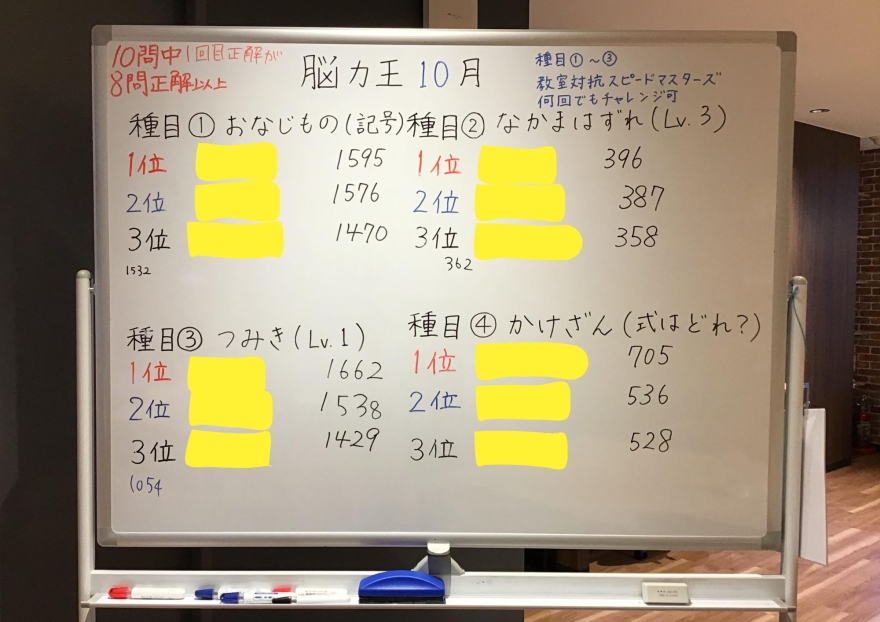 10問中1回目正解が
8問正解以上
脳力王10月
種目①~③
教室対抗スピードマスターズ
何回でもチャレンジ可
種目①おなじもの(記号)
1位 1595
2位 1576
3位 1470
1532
種目②なかまはずれ(Lv.3)
1位 396
2位 387
3位 358
362
種目③つみき(Lv.1)
1位 1662
2位 1538
3位 1429
1054
種目④かけざん(式はどれ?)
1位 705
2位 536
3位 528